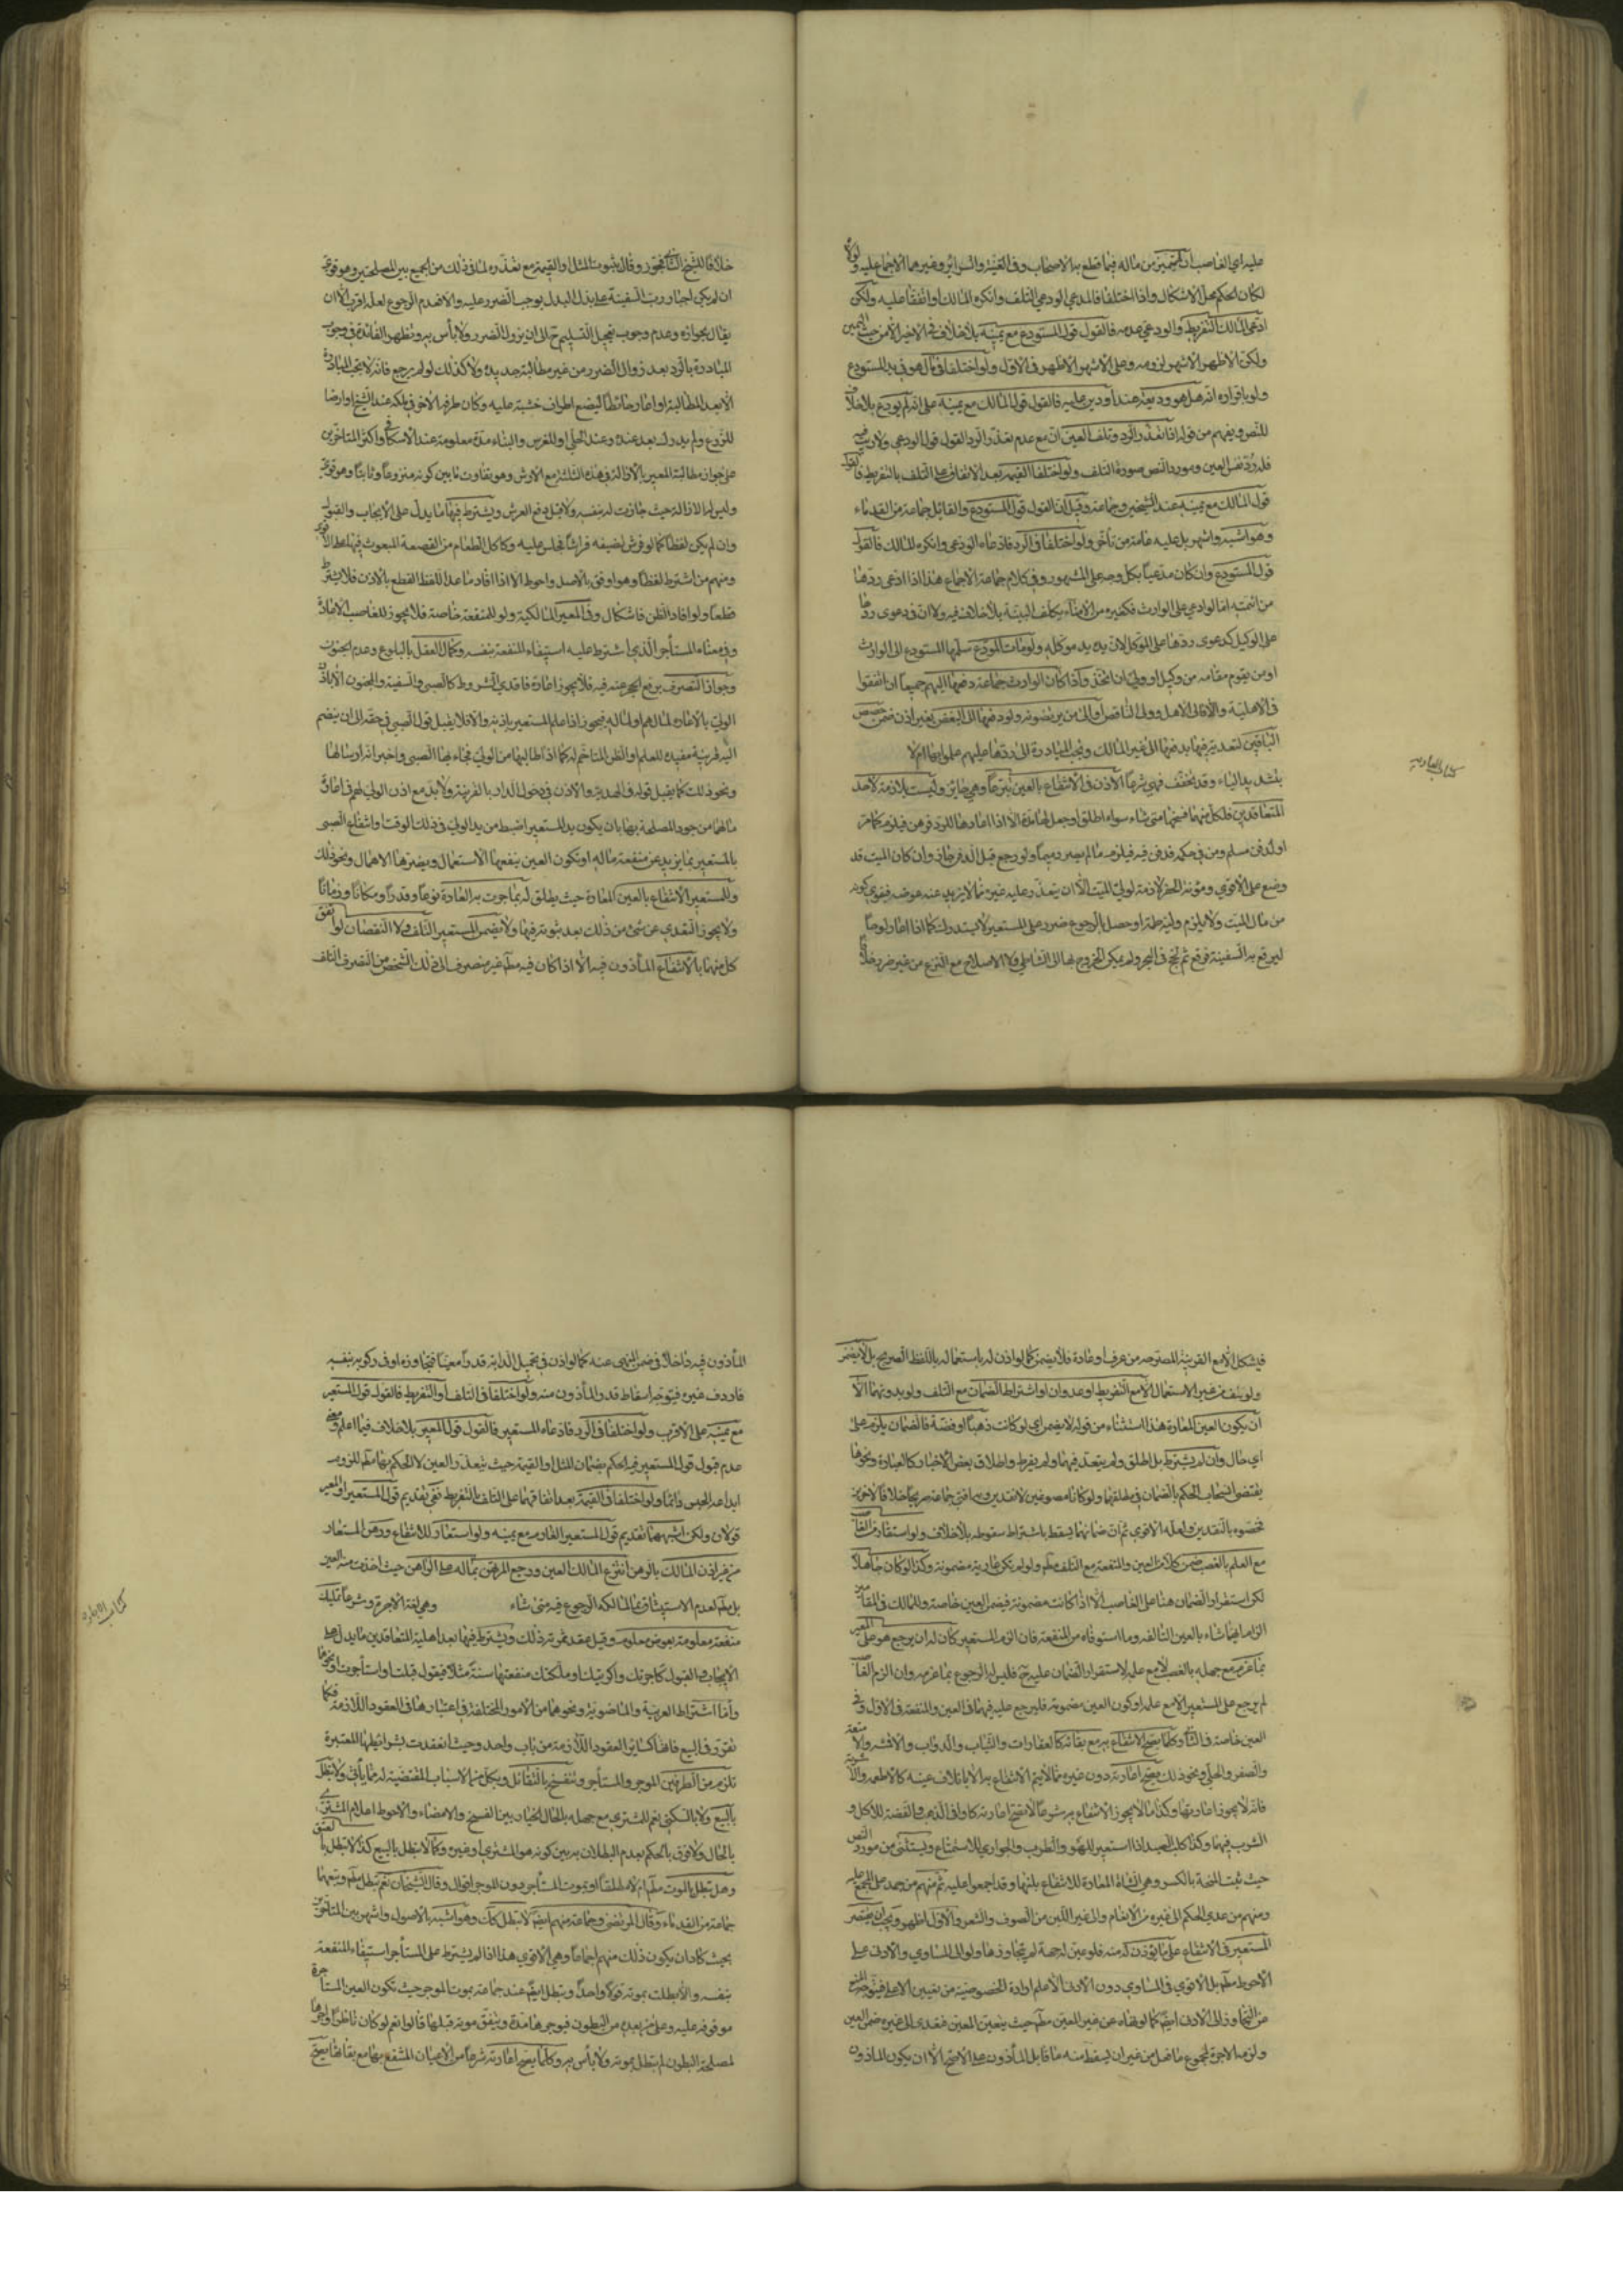 عليه اي الغاصب ان يتميز من ماله فيما قطع به الاصحاب وفي الغنية والسرائر وغيرهما الاجماع عليه ولولاه
لكان الحكم محل الاشكال واذا اختلفا فالمدعي الودعي التلف وانكره المالك او اتفقا عليه ولكن
ادعى المالك التفريط والودعي عدمه فالقول قول المستودع مع يمينه بلا خلاف في الاخير الا من حيث اليمين
ولكن الاظهر الاشهر لزومه وعلى الاشهر الاظهر في الاول ولو اختلفا في مال هو في يد المستودع
ولو باقراره انه هل هو وديعة عند او دين عليه فالقول قول المالك مع يمينه على انه لم يودع بلا خلاف
للنص ويفهم من قوله اذا تعذر الرد وتلف العين انه مع عدم تعذر الرد القول قول الودعي ولا ريب فيه
فله رد نفس العين ومورد النص صورة التلف ولو اختلفا القيمة بعد الاتفاق على التلف بالتفريط فالقول
قول المالك مع يمينه عند الشيخين وجماعة وقيل ان القول قول المستودع والقائل جماعة من القدماء
وهو اشبه واشهر بل عليه عامة من تأخر ولو اختلفا في الرد فادعاه الودعي وانكره المالك فالقول
قول المستودع وان كان مدعيا بكل وجه على المشهور وفي كلام جماعة الاجماع هذا اذا ادعى ردها
من ائتمنه اما لو ادعى على الوارث فكغيره من الامناء يكلف البينة بلا خلاف فيه ولا في دعوى ردها
على الوكيل كدعوى ردها على الموكل لان يده يد موكله ولو مات المودع سلمها المستودع الى الوارث
او من يقوم مقامه من وكيل او ولي ان اتحد واذا كان الوارث جماعة دفعها اليهم جميعا ان اتفقوا
في الاهلية والا فالى الاهل وولي الناقص او الى من يرتضونه ولو دفعها الى البعض بغير اذن ضمن حصص
الباقين لتعديه فيها بدفعها الى غير المالك وتجب المبادرة الى ردها عليهم علموا بها ام لا
كتاب العارية
بتشديد الياء وقد تخفف فهي شرعا الاذن في الانتفاع بالعين تبرعا وهي جائزة وليست بلازمة لاحد
المتعاقدين فلكل منهما فسخها متى شاء سواء اطلق او جعل لها مدة الا اذا اعارها للرهن فيلزم كما مر
او لدفن مسلم ومن في حكمه فدفن فيه فيلزم ما لم يصر رميما ولو رجع قبل الدفن جاز وان كان الميت قد
وضع على الاقوى ومؤنة الحفر لازمة لولي الميت الا ان يتعذر عليه غيره مما لا يزيد عنه عوضه فيقوى كونه
من مال الميت ولا يلزم وليه طمه او حصل بالرجوع ضرر على المستعير لا يستدرك كما اذا اعار لوحا
ليرقع به السفينة فرقع ثم لج في البحر ولم يمكن الخروج بها الى الشاطئ ولا الاصلاح مع النزع من غير ضرر خلافا
خلافا للشيخ فجوز وقال بثبوت المثل او القيمة مع تعذره لما في ذلك من الجمع بين المصلحتين وهو قوي
ان لم يكن اجبار رب السفينة على بذل البدل يوجب الضرر عليه والا فعدم الرجوع لعله اقرب الا ان
يقال بجوازه وعدم وجوب تعجيل التسليم ح الى ان يزول الضرر ولا بأس به وتظهر الفائدة في وجوب
المبادرة بالرد بعد زوال الضرر من غير مطالبة جديدة ولا كذلك لو لم يرجع فانه لا تجب المبادرة
الا بعد المطالبة او اعار حائطا ليضع اطراف خشبة عليه وكان طرفه الاخر في ملكه عند الشيخ او ارضا
للزرع ولم يدرك بعد عنده وعند الحلي او للغرس والبناء مدة معلومة عند الاسكافي واكثر المتاخرين
على جواز مطالبة المعير بالازالة في هذه الثلثة مع الارش وهو تفاوت ما بين كونه منزوعا وثابتا وهو قوي
وليس له الازالة حيث جازت له بنفسه ولا قبل دفع الارش ويشترط فيها ما يدل على الايجاب والقبول
وان لم يكن لفظا كما لو فرش لضيفه فراشا فجلس عليه وكاكل الطعام من القصعة المبعوث فيها على الاقوى
ومنهم من اشترط لفظا وهو اوفق بالاصل واحوط الا اذا افاد ما عدا اللفظ القطع بالاذن فلا يشترط
قطعا ولو افاد الظن فاشكال وفي المعير المالكية ولو للمنفعة خاصة فلا يجوز للغاصب الاعارة
وفي معناه المستأجر الذي اشترط عليه استيفاء المنفعة بنفسه وكمال العقل بالبلوغ وعدم الجنون
وجواز التصرف برفع الحجر عنه فيه فلا يجوز اعارة فاقدي الشروط كالصبي والسفيه والمجنون الا باذن
الولي بالاعارة لمالهم او لماله فيجوز اذا علم المستعير باذنه والا فلا يقبل قول الصبي في حقه الا ان ينضم
اليه قرينة مفيدة للعلم او الظن المتاخم له كما اذا طالبها من الولي فجاء بها الصبي واخبر انه ارسله بها
ونحو ذلك كما يقبل قوله في الهدية والاذن في دخول الدار بالقرينة ولا بد مع اذن الولي لهم في اعارة
مالهما من جود المصلحة بها بان يكون يد المستعير اضبط من يد الولي في ذلك الوقت وانتفاع الصبي
بالمستعير بما يزيد عن منفعة ماله او تكون العين ينفعها الاستعمال ويضرها الاهمال ونحو ذلك
وللمستعير الانتفاع بالعين المعارة حيث يطلق له بما جرت به العادة نوعا وقدرا ومكانا وزمانا
ولا يجوز التعدي عن شئ من ذلك بعد ثبوته فيها ولا يضمن المستعير التلف ولا النقصان لو اتفق
كل منهما بالانتفاع المأذون فيه الا اذا كان فيه مطلق غير منصرف الى ذلك الشخص من التصرف التلف
فيشكل الا مع القرينة المصرحة من عرف او عادة فلا يضمن كما لو اذن له باستعماله باللفظ الصريح بل لا يضمن
ولو تلف من غير الاستعمال الا مع التفريط او عدوان او اشتراط الضمان مع التلف ولو بدونهما الا
ان يكون العين المعارة هذا استثناء من قوله لا يضمن اي لو كانت ذهبا او فضة فالضمان يلزم على
اي حال وان لم يشترط بل اطلق ولم يتعد فيهما ولم يفرط واطلاق بعض الاخبار كالعبارة ونحوها
يقتضي انسحاب الحكم بالضمان في مطلقهما ولو كانا مصوغين لا نقدين وبه افتى جماعة صريحا خلافا لاخرين
فخصوه بالنقدين ولعله الاقوى ثم ان ضمانهما يسقط باشتراط سقوطه بلا خلاف ولو استعار من الغاصب
مع العلم بالغصب ضمن كلا من العين والمنفعة مع التلف مطلقا ولو لم يكن عارية مضمونة وكذا لو كان جاهلا
لكن استقرار الضمان هنا على الغاصب الا اذا كانت مضمونة فيضمن العين خاصة وللمالك في المقامين
الزام ايهما شاء بالعين التالفة وما استوفاه من المنفعة فان الزم المستعير كان له ان يرجع هو على المعير
بما غرم مع جهله بالغصب لا مع علمه لاستقرار الضمان عليه ح فليس له الرجوع بما غرمه وان الزم الغاصب
لم يرجع على المستعير الا مع علمه او كون العين مضمونة فليرجع عليه فيهما في العين والمنفعة في الاول وفي
العين خاصة في الثاني وكلما يصح الانتفاع به مع بقائه كالعقارات والثياب والدواب والاقمشة والامتعة
والصفر والحلي ونحو ذلك يصح اعارته دون غيره مما لا يتم الانتفاع به الا باتلاف عينه كالاطعمة والاشربة
فانه لا يجوز اعارتها وكذا ما لا يجوز الانتفاع به شرعا لا تصح اعارته كاواني الذهب والفضة للاكل و
الشرب فيهما وكذا كلب الصيد اذا استعير للهو والطرب والجواري للاستمتاع ويستثنى من مورد النص
حيث ثبت المنحة بالكسر وهي الشاة المعارة للانتفاع بلبنها وقد اجمعوا عليه ثم منهم من جمد على المجمع عليه
ومنهم من عدى الحكم الى غيره من الانعام والى غير اللبن من الصوف والشعر والاول اظهر ويجب ان يقتصر
المستعير في الانتفاع على ما يؤذن له منه فلو عين له جهة لم يتجاوزها ولو الى المساوي والادنى على
الاحوط مطلقا بل الاقوى في المساوي دون الادنى الا مع علم ارادة الخصوصية من تعيين الاعلى فيتوجه المنع
من التجاوز الى الادنى ايضا كما لو نهاه عن غير المعين مطلقا حيث يتعين المعين فتعدى الى غيره ضمن العين
ولزمه الاجرة لمجموع ما فعل من غير ان يسقط منه ما قابل المأذون على الاصح الا ان يكون الماذون
المأذون فيه داخلا في ضمن المنهي عنه كما لو اذن في تحميل الدابة قدرا معينا فتجاوزه او في ركوبه بنفسه
فاردف غيره فيتوجه اسقاط قدر المأذون منه ولو اختلفا في التلف او التفريط فالقول قول المستعير
مع يمينه على الاقرب ولو اختلفا في الرد فادعاه المستعير فالقول قول المعير بلا خلاف فيما اعلم ومعنى
عدم قبول قول المستعير فيه الحكم بضمان المثل او القيمة حيث يتعذر العين لا الحكم بها مطلقا للزوم
ابدا عند الحبس دائما ولو اختلفا في القيمة بعد اتفاقهما على التلف بالتفريط ففي تقديم قول المستعير او المعير
قولان ولكن اشبههما تقديم قول المستعير الغارم مع يمينه ولو استعار للانتفاع ورهن المستعار
من غير اذن المالك بالرهن انتزع المالك العين ورجع المرتهن بماله على الراهن حيث اخذت منه العين
بل مطلقا لعدم الاستيثاق بمال مالكه الرجوع فيه متى شاء وهي لغة الاجرة وشرعا تمليك
كتاب الاجارة
منفعة معلومة بعوض معلوم وقيل عقد ثمرته ذلك ويشترط فيها بعد اهلية المتعاقدين ما يدل على
الايجاب والقبول كآجرتك واكريتك او ملكتك منفعتها سنة مثلا فيقول قبلت او استأجرت ونحوها
واما اشتراط العربية والماضوية ونحوهما من الامور المختلفة في اعتبارها في العقود اللازمة فكما
تقرر في البيع فانها كسائر العقود اللازمة من باب واحد وحيث انعقدت بشرائطها المعتبرة
تلزم من الطرفين الموجر والمستأجر وتنفسخ بالتقايل وبكل من الاسباب المقتضية له مما يأتي ولا تبطل
بالبيع ولا بالسكنى نعم للمشتري مع جهله بالحال الخيار بين الفسخ والامضاء والاحوط اعلام المشتري
بالحال ولا فرق بالحكم بعدم البطلان به بين كونه هو المشتري او غيره وكما لا تبطل بالبيع كذا لا تبطل بالعتق
وهل تبطل بالموت مطلقا ام لا مطلقا او بموت المستأجر دون الموجر اقوال وقال الشيخان نعم تبطل مطلقا وتبعهما
جماعة من القدماء وقال المرتضى وجماعة منهم ايضا لا تبطل كك وهو اشبه بالاصول واشهر بين المتاخرين
بحيث كاد ان يكون ذلك منهم اجماعا وهي الاقوى هذا اذا لم يشترط على المستأجر استيفاء المنفعة
بنفسه والا بطلت بموته قولا واحدا وتبطل ايضا عند جماعة بموت الموجر حيث تكون العين المستأجرة
موقوفة عليه وعلى من بعده من البطون فيوجرها مدة ويتفق موته قبلها قالوا نعم لو كان ناظرا واجرها
لمصلحة البطون لم تبطل بموته ولا بأس به وكلما يصح اعارته شرعا من الاعيان المنتفع بها مع بقائها يصح